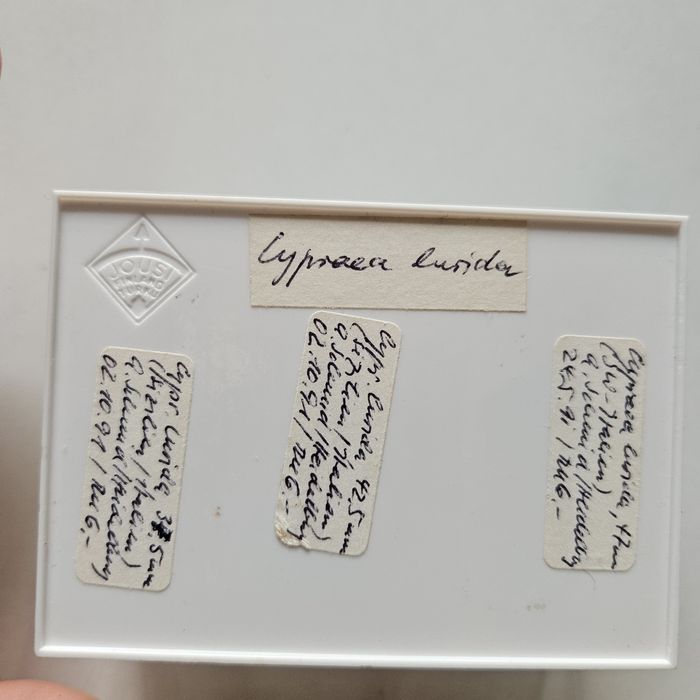 JOUSI
FINLAND
TURKU
Cypraea lurida
Cypr. lurida 37,5 mm
(Sizilien / Italien)
G. Schmid / Heidelberg
02.10.91 / DM 6,-
Cypr. lurida 42,5 mm
(Sizilien / Italien)
G. Schmid / Heidelberg
02.10.91 / DM 6,-
Cypraea lurida, 47 mm
(SW-Italien)
G. Schmid / Heidelbg
24.5.91 / DM 6,-